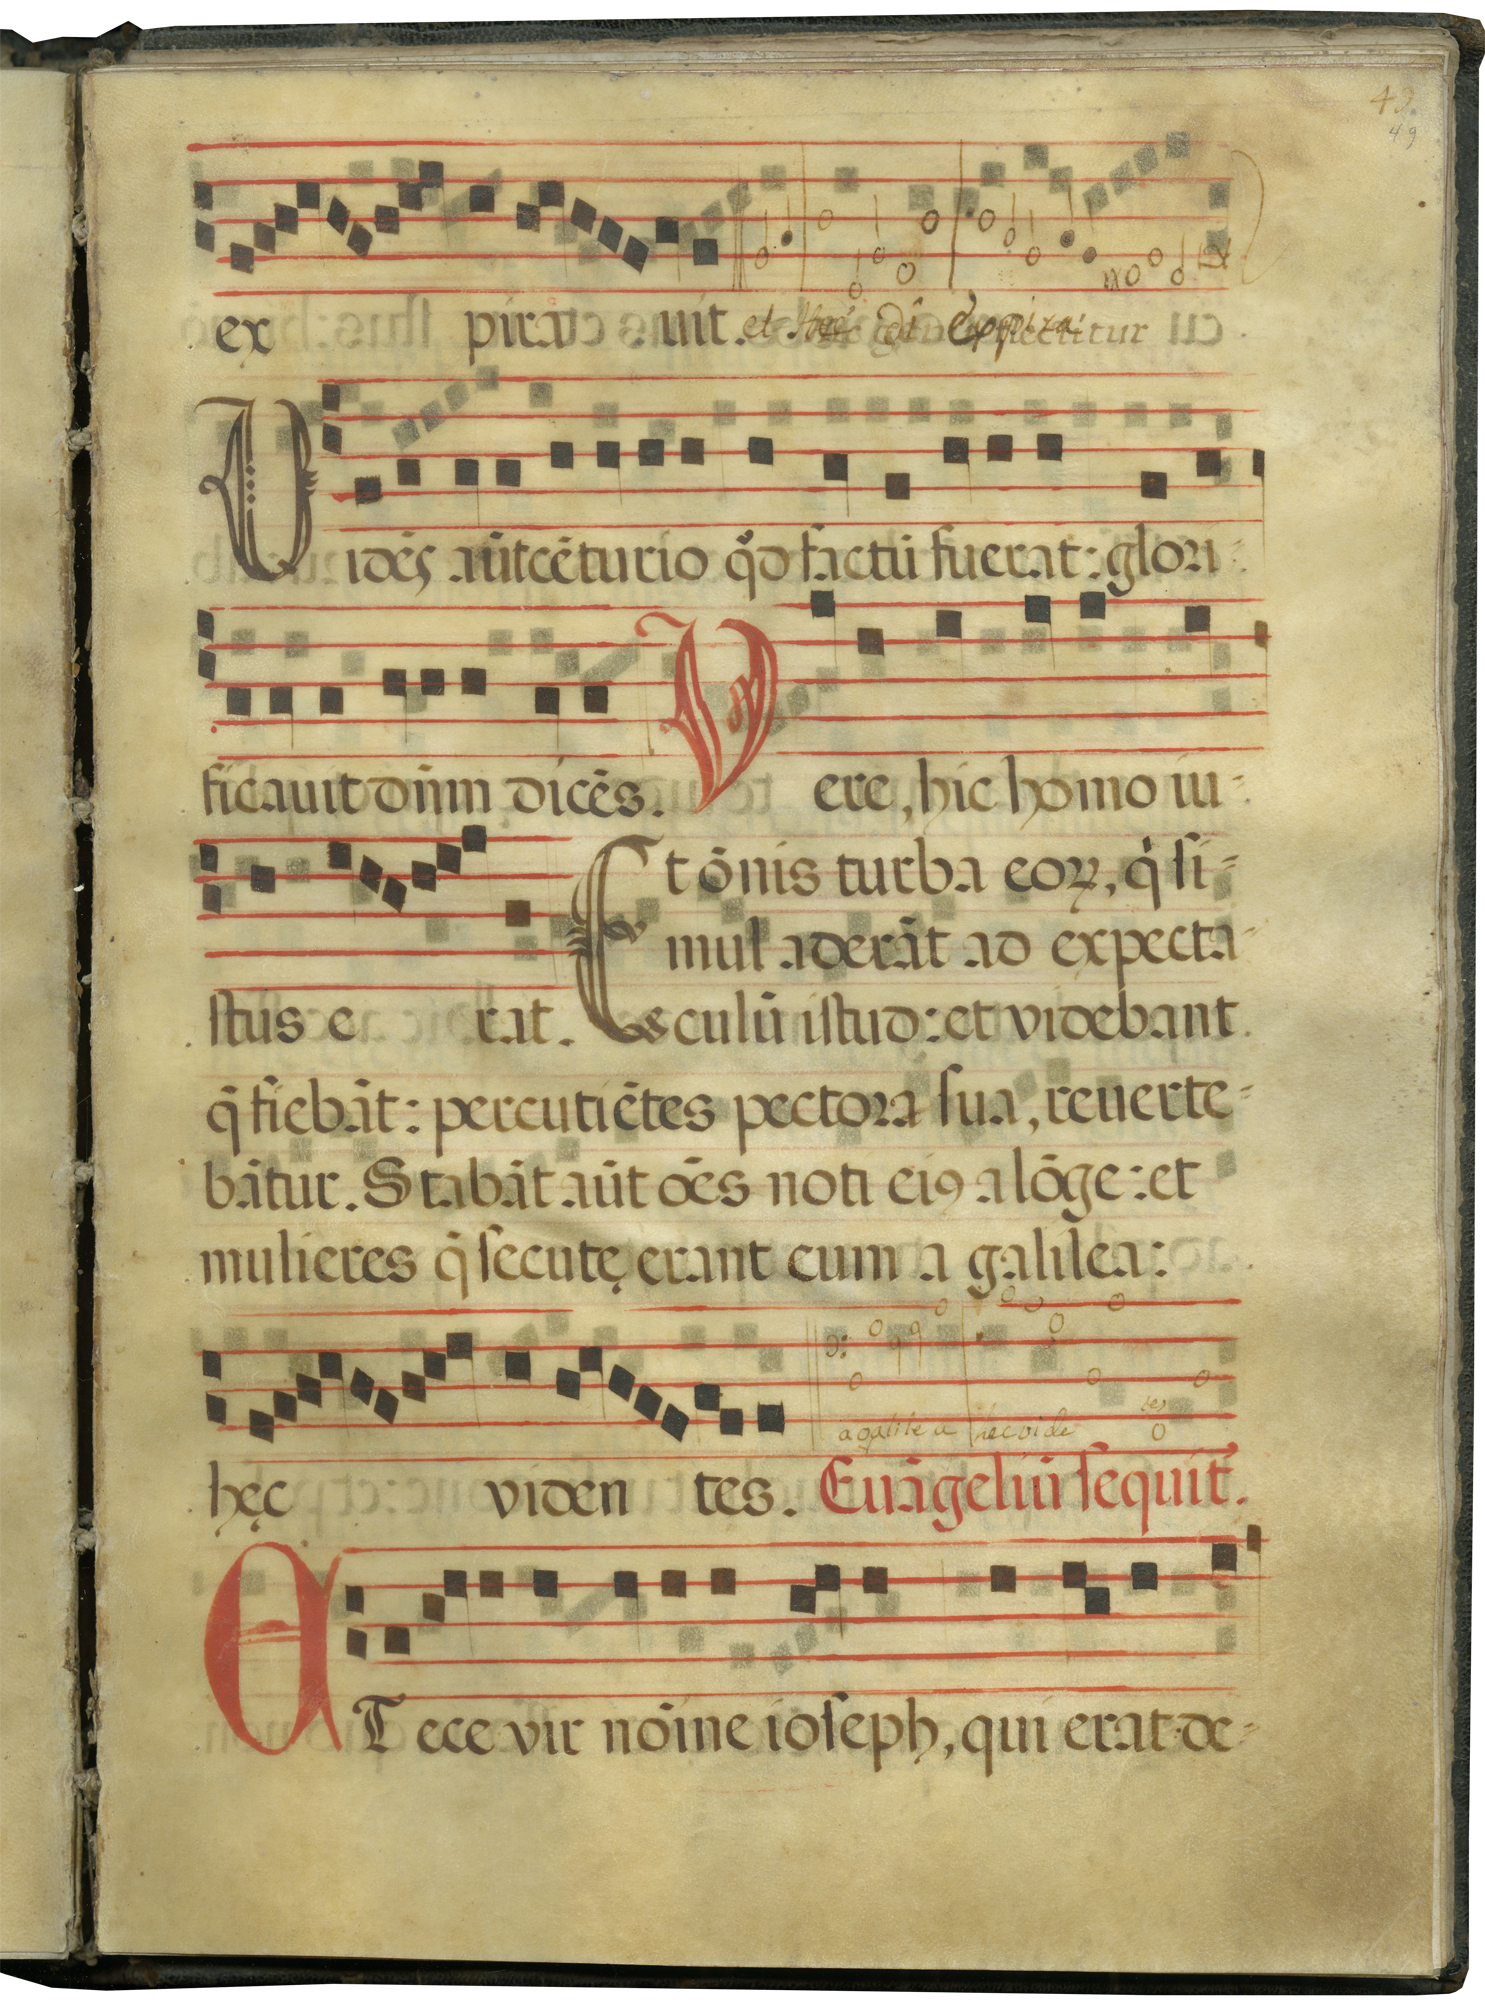 49.
49
ex pira uit. et hec di expira
Uidēs aūt cēturio qđ factū fuerat: glori-
ficauit dn̄m dicēs. Vere, hic homo iu-
stus e rat. Et ōnis turba eoꝝ, q̇ si-
mul aderāt ad expecta-
culū istud: et videbant
q̄ fiebāt: percutiētes pectora sua, reuerte-
bātur. Stabāt aūt oēs noti eiꝰ a lōge: et
mulieres q̄ secutę erant eum a galilea:
a galile a hec vide tes
hęc viden tes. Euāgeliū sequit̄.
AT ecce vir nōine ioseph, qui erat de-